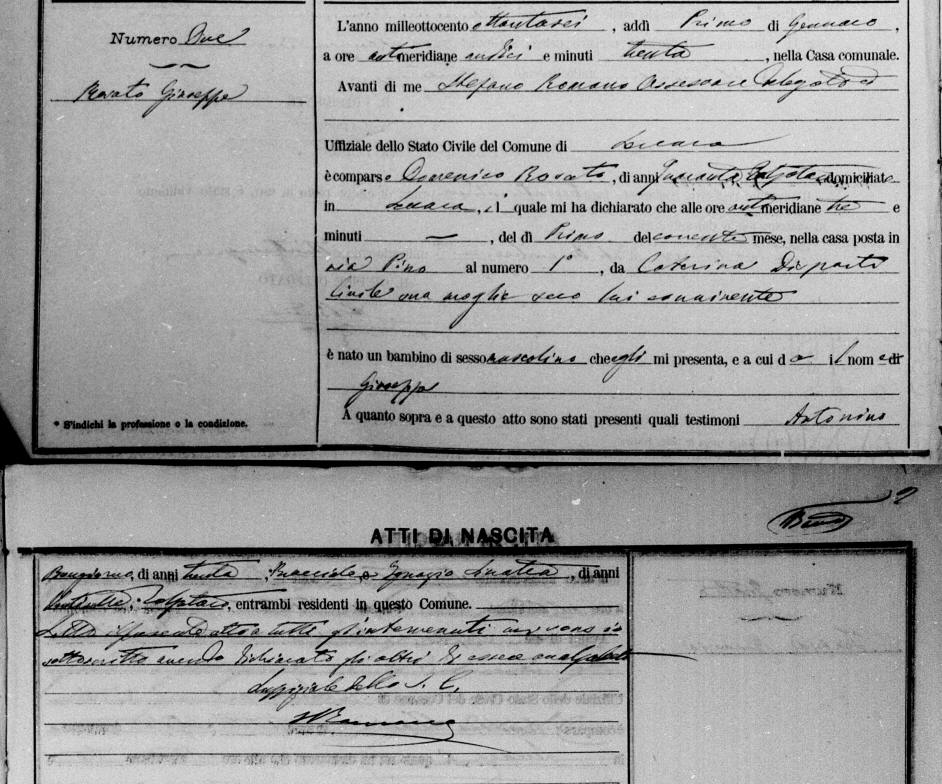 Numero Due
Rosato Giuseppe
* S'indichi la professione o la condizione.
L'anno milleottocento ottantasei, addì Primo di Gennaro,
a ore antimeridiane undici e minuti trenta, nella Casa comunale.
Avanti di me Stefano Romano Assessore Delegato
Uffiziale dello Stato Civile del Comune di Lercara
è comparso Domenico Rosato, di anni quaranta, Zolfataio domiciliato
in Lercara, il quale mi ha dichiarato che alle ore antimeridiane tre e
minuti —, del dì Primo del corrente mese, nella casa posta in
via Pino al numero 1°, da Caterina Di
civile sua moglie seco lui convivente
è nato un bambino di sesso mascolino che egli mi presenta, e a cui dà il nome di
Giuseppe
A quanto sopra e a questo atto sono stati presenti quali testimoni Antonino
2
ATTI DI NASCITA
Bongiorno, di anni trenta, Bracciale e Ignazio, di anni
Zolfataio, entrambi residenti in questo Comune.
Letto il presente atto a tutti gl'intervenuti
sottoscritto avendo dichiarato gli altri di essere analfabeti
L'uffiziale dello S. C.
S Romano